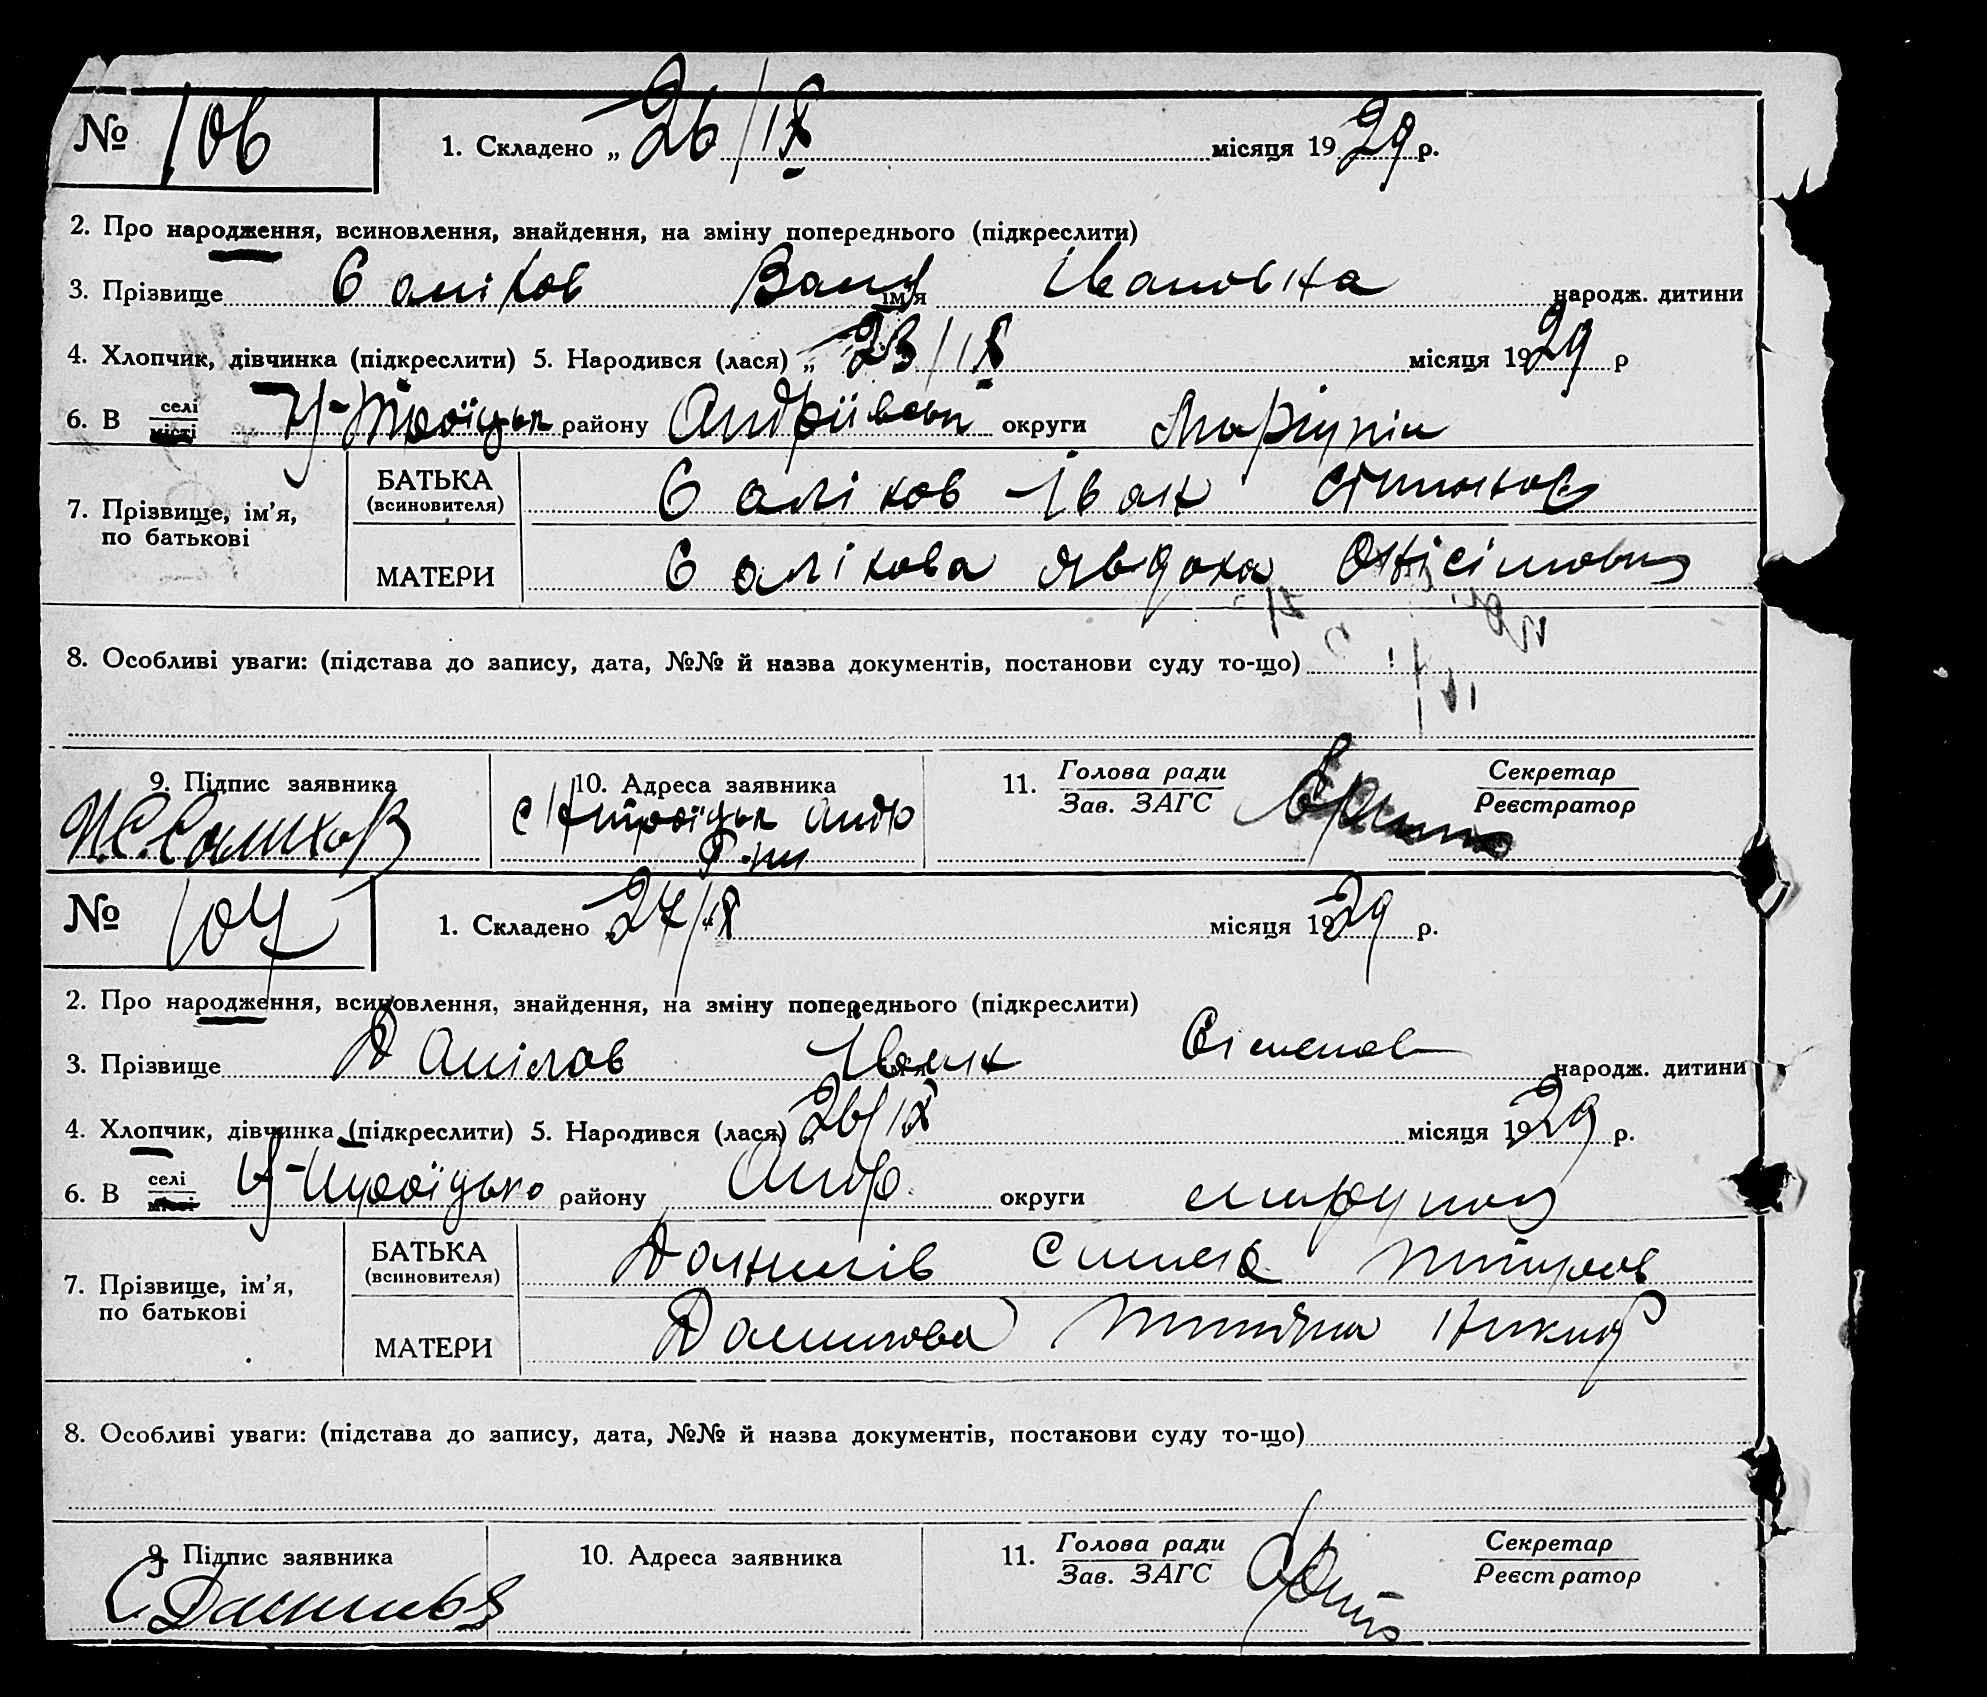 № 106
1. Складено „ 26/IX місяця 1929 р.
2. Про народження, всиновлення, знайдення, на зміну попереднього (підкреслити)
3. Прізвище Саліков ім'я Івановна народж. дитини
4. Хлопчик, дівчинка (підкреслити) 5. Народився (лася) „ 23/IX місяця 1929 р
6. В селі місті Н-Троїцьк району Андріївськ округи Маріупіл
7. Прізвище, ім'я, по батькові
БАТЬКА (всиновителя) Саліков Іван
МАТЕРИ Салікова Явдоха Онісімовна
8. Особливі уваги: (підстава до запису, дата, №№ й назва документів, постанови суду то-що)
9. Підпис заявника 10. Адреса заявника 11. Голова ради Зав. ЗАГС Секретар Реєстратор
И.С.Салихов с Н троїцьк Андр
Р-ну
№ 107
1. Складено „ 27/IX місяця 1929 р.
2. Про народження, всиновлення, знайдення, на зміну попереднього (підкреслити)
3. Прізвище Данілов Іван Сіменов народж. дитини
4. Хлопчик, дівчинка (підкреслити) 5. Народився (лася) „ 26/IX місяця 1929 р.
6. В селі місті Н-Троїцько району Андр. округи
7. Прізвище, ім'я, по батькові
БАТЬКА (всиновителя) Данилів Симен
МАТЕРИ Данилова Никит
8. Особливі уваги: (підстава до запису, дата, №№ й назва документів, постанови суду то-що)
9. Підпис заявника 10. Адреса заявника 11. Голова ради Зав. ЗАГС Секретар Реєстратор
С Данилов